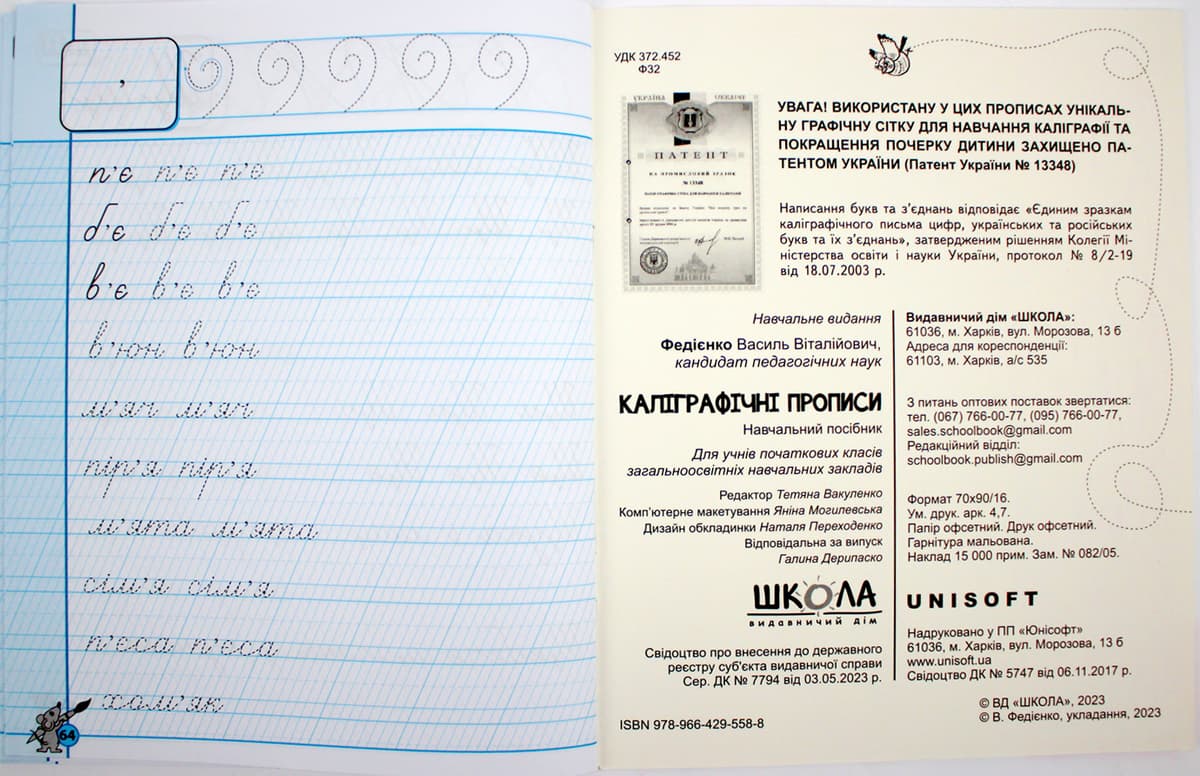 ,
п'є п'є п'є
б'є б'є б'є
в'є в'є в'є
в'юн в'юн
м'яч м'яч
пір'я пір'я
м'ята м'ята
сім'я сім'я
п'єса п'єса
хом'як
64
УДК 372.452
Ф32
УКРАЇНА UKRAINE
ПАТЕНТ
НА ПРОМИСЛОВИЙ ЗРАЗОК
№ 13348
УВАГА! ВИКОРИСТАНУ У ЦИХ ПРОПИСАХ УНІКАЛЬ-
НУ ГРАФІЧНУ СІТКУ ДЛЯ НАВЧАННЯ КАЛІГРАФІЇ ТА
ПОКРАЩЕННЯ ПОЧЕРКУ ДИТИНИ ЗАХИЩЕНО ПА-
ТЕНТОМ УКРАЇНИ (Патент України № 13348)
Написання букв та з'єднань відповідає «Єдиним зразкам
каліграфічного письма цифр, українських та російських
букв та їх з'єднань», затвердженим рішенням Колегії Мі-
ністерства освіти і науки України, протокол № 8/2-19
від 18.07.2003 р.
Навчальне видання
Федієнко Василь Віталійович,
кандидат педагогічних наук
КАЛІГРАФІЧНІ ПРОПИСИ
Навчальний посібник
Для учнів початкових класів
загальноосвітніх навчальних закладів
Редактор Тетяна Вакуленко
Комп'ютерне макетування Яніна Могилевська
Дизайн обкладинки Наталя Переходенко
Відповідальна за випуск
Галина Дерипаско
ШКОЛА
видавничий дім
Свідоцтво про внесення до державного
реєстру суб'єкта видавничої справи
Сер. ДК № 7794 від 03.05.2023 р.
ISBN 978-966-429-558-8
Видавничий дім «ШКОЛА»:
61036, м. Харків, вул. Морозова, 13 б
Адреса для кореспонденції:
61103, м. Харків, а/с 535
З питань оптових поставок звертатися:
тел. (067) 766-00-77, (095) 766-00-77,
sales.schoolbook@gmail.com
Редакційний відділ:
schoolbook.publish@gmail.com
Формат 70х90/16.
Ум. друк. арк. 4,7.
Папір офсетний. Друк офсетний.
Гарнітура мальована.
Наклад 15 000 прим. Зам. № 082/05.
UNISOFT
Надруковано у ПП «Юнісофт»
61036, м. Харків, вул. Морозова, 13 б
www.unisoft.ua
Свідоцтво ДК № 5747 від 06.11.2017 р.
© ВД «ШКОЛА», 2023
© В. Федієнко, укладання, 2023